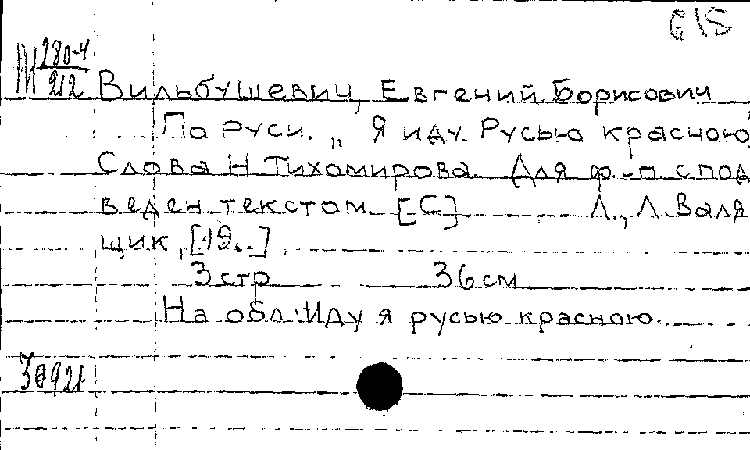 615
М 280-4
212
Вильбушевич, Евгений Борисович
По Руси. „Я иду Русью красною
Слова Н Тихомирова. Для ф.-п с под
веден текстом [С] Л., Л Валя
щик, [19..]
3 стр 36 см
На обл: Иду я русью красною.
30921